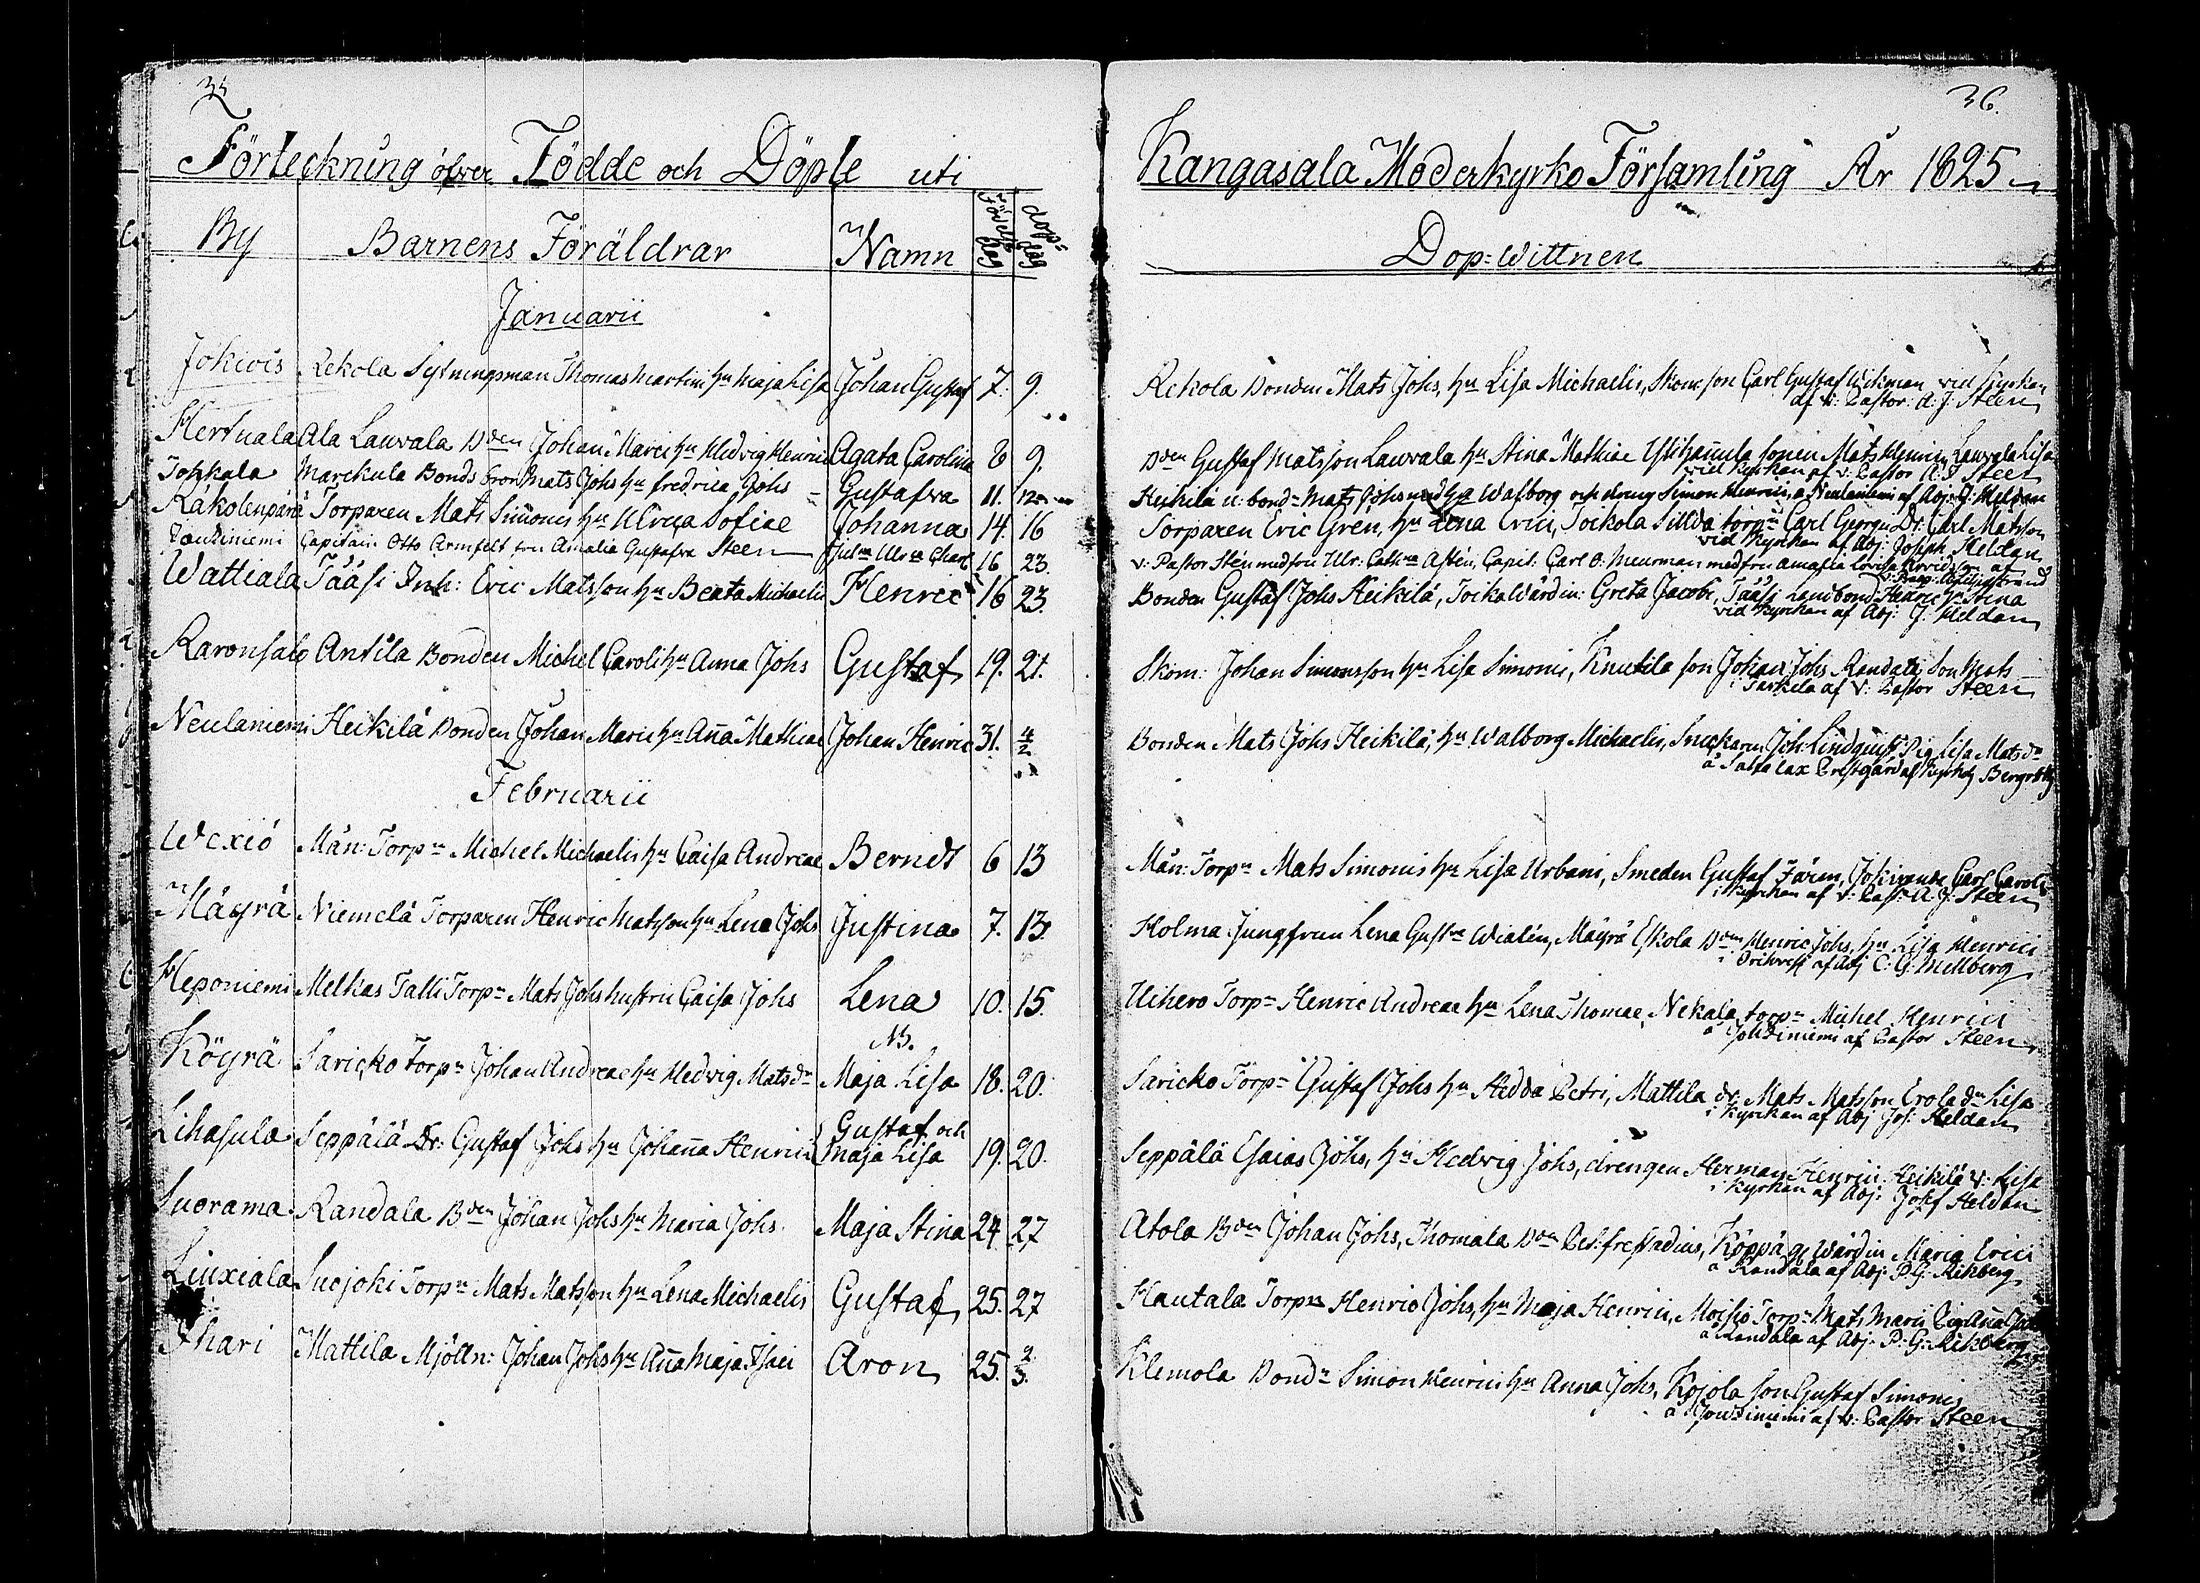 35
Förteckning öfver Födde och Döpte uti
By Barnens Föräldrar Namn Födelse dag dop= dag
Januarii
Jokiois Rekola Sytningsman Thomas Martini hu Maja Lisa Johan Gustaf 7. 9.
Hertuala Ala Lauvala Bden Johan Marci hu Hedvig Henrici Agata Carolina 8 9.
Tohkala Marckula Bonds bron Mats Johs hu fredrica Johs Gustafva 11. 12
Rakolenpärä Torparen Mats Simonis hu Ulrica Sofiae Johanna 14. 16
Jouziniemi Capitain Otto Armfelt fru Amalia Gustafva Steen Charl 16 23.
Wattiala Tääsi Inh: Eric Matsson hu Beata Michaelis Henric 16 23.
Raronsalo Antila Bonden Michel Caroli hu Anna Johs Gustaf 19. 21.
Neulaniemi Heikilä Bonden Johan Marci hu Aña Mathiae Johan Henric 31. 4/2
Februarii
Wexiö Män: Torpn Michel Michaelis hu Caisa Andreae Berndt 6 13
Mäyrä Niemelä Torparen Henric Matsson hu Lena Johs Justina 7. 13.
Heponiemi Melkas Talli Torpn Mats Johs hustru Caisa Johs Lena 10. 15.
NB.
Köyrä Saricko Torpn Johan Andreae hu Hedvig Matsdr Maja Lisa 18. 20.
Lihasula Seppälä Dr: Gustaf Johs hu Johaña Henrici Gustaf och
Maja Lisa 19. 20.
Suorama Randala Bden Johan Johs hu Maria Johs Maja Stina 24 27
Liuxiala Suojoki Torpn Mats Matsson hu Lena Michaelis Gustaf 25. 27
Ihari Mattila Mjölln: Johan Johs hu Aña Maja Isaci Aron 25. 2/3.
36.
Kangasala Moderkyrko Församling År 1825
Dop=Wittnen
Rekola Bonden Mats Johs, hu Lisa Michaelis, Skom: son Carl Gustaf Wikman vid Kyrkan
af v: Pastor: A. J. Steen
Bden Gustaf Matsson Lauvala hu Stina Mathiae Ylihañula sonen Mats Henrici Lauvala Lisa
vid Kyrkan af v: Pastor A: J Steen
Heikilä u: bond= Mats Johs med hu Walborg och dreng Simon Henrici, a Neulaniemi af Adj: J: Heldan
Torparen Eric Gren, hu Lena Erici, Toikola Sillda torpn Carl Georgii Dr: Carl Matsson
vid Kyrkan af Adj: Joseph Heldan
v: Pastor Steen med fru Ulr: Cathna Asten, Capit: Carl O: Meurman med fru Amalia Lovisa Arvidsson af
Bonden Gustaf Johs Heikilä, Toikawärdin: Greta Jacobi, Tääsi Landbond Henric hu Stina
vid Kyrkan af Adj: J. Heldan
Skom: Johan Simonsson hu Lisa Simonis, Knutila son Johan Johs Randala son Mats
i Tarkila af v: Pastor Steen
Bonden Mats Johs Heikilä, hu Walborg Michaelis, Snickaren Joh: Lindquist Pig Lisa Matsdr
å Prestgård af Kyrkoh
Män: Torpn Mats Simonis hu Lisa Urbani, Smeden Gustaf Färm, Carl Caroli
i Kyrkan af v: Past: A. J. Steen
Holma Jungfrun Lena Gustva Wialén, Mäyrä Eskola Bden Henric Johs, hu Lisa Henrici
i Orihvesi af Adj C: G: Mellberg
Uihero Torpn Henric Andreae hu Lena Thomae, Nekala torpn Michel Henrici
å Jouziniemi af Pastor Steen
Saricko Torpn Gustaf Johs hu Hedda Petri, Mattila dr: Mats Matsson Erola dr Lisa
i Kyrkan af Adj Jos: Heldan
Seppälä Esaias Johs, hu Hedvig Johs, drengen Herman Henrici, Heikilä v: Lisa
i Kyrkan af Adj: Josf Heldan
Atola Bden Johan Johs, Thomala Bden Pet: fressadius, Köppä g: Wärdin Maria Erici
å Randala af Adj: P: G: Rikberg
Hautala Torpn Henric Johs, hu Maja Henrici, Moisio Torpn Mats Marci Pig Aña
å Randala af Adj: P: G: Rikberg
Klemola Bondn Simon Henrici hu Anna Johs, Kojola son Gustaf Simonis
å Jouziniemi af v: Pastor Steen